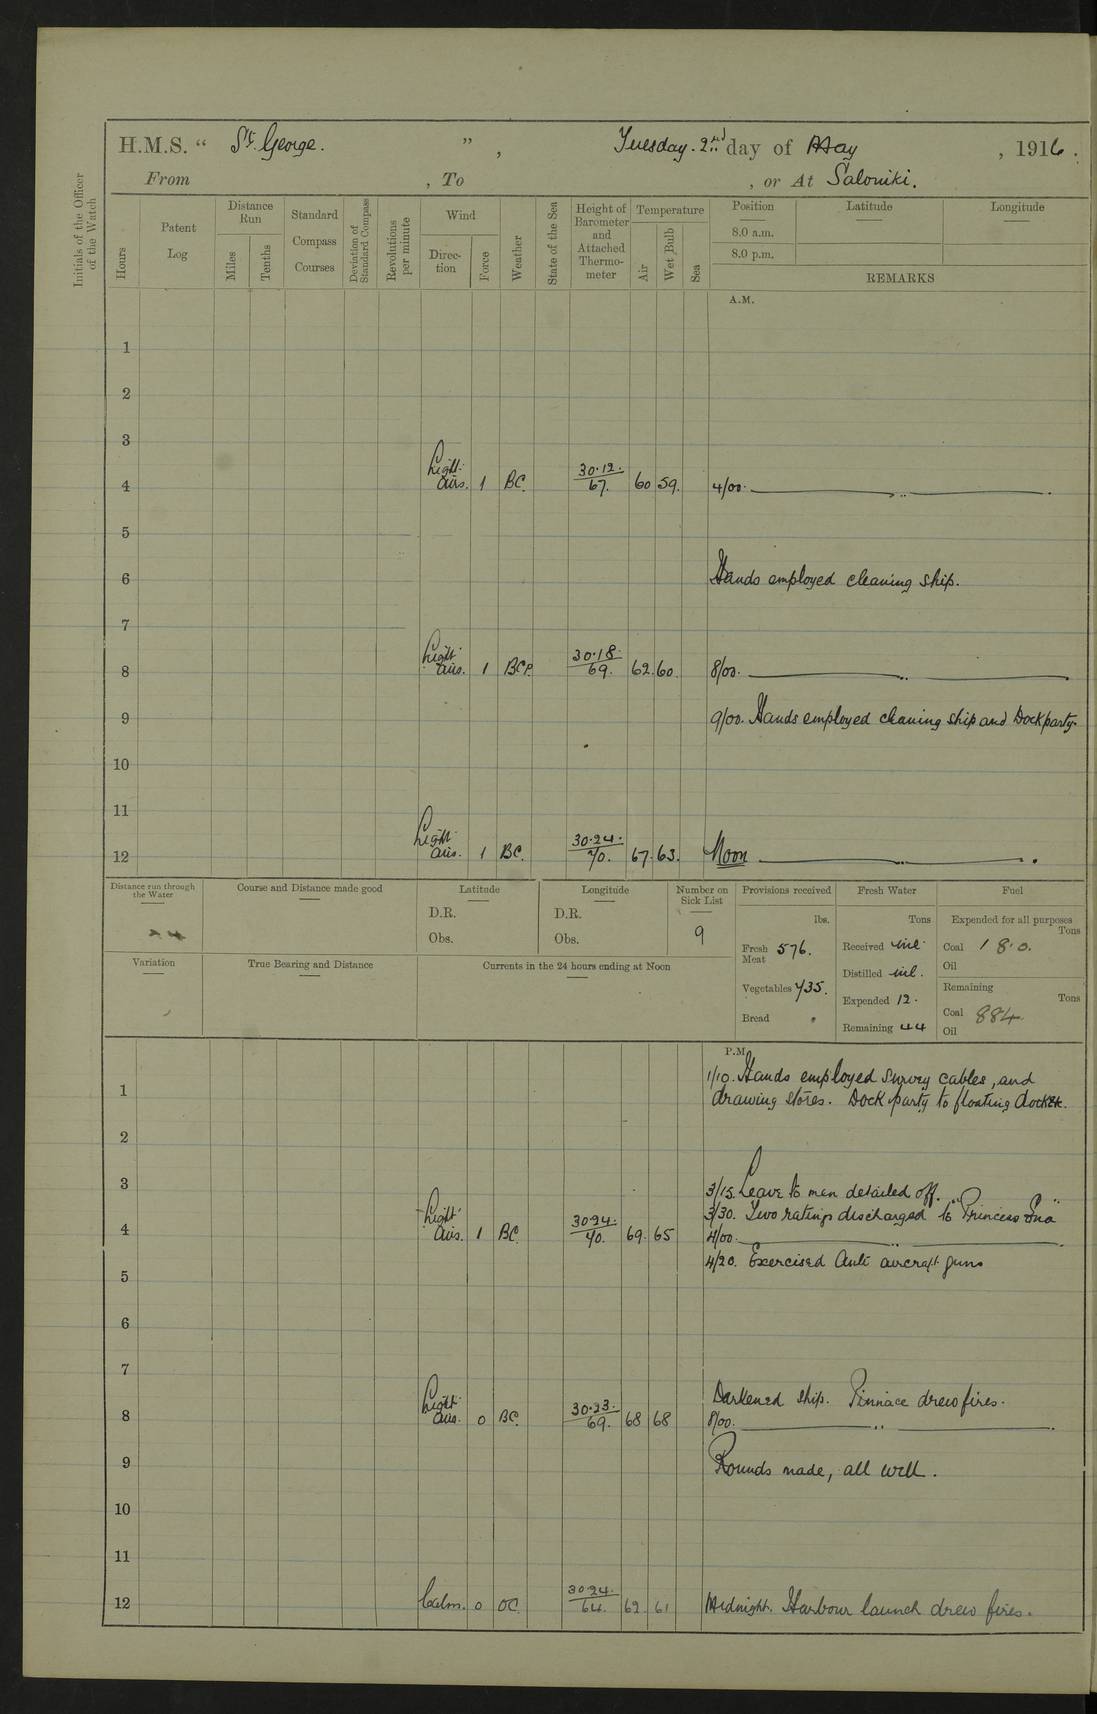 H.M.S. " St. George. ", Tuesday. 2nd day of May, 1916.
From , To , or At Saloniki.
Initials of the Officer of the Watch
Hours
Patent Log
Distance Run
Miles
Tenths
Standard Compass Courses
Deviation of Standard Compass
Revolutions per minute
Wind
Direction
Force
Weather
State of the Sea
Height of Barometer and Attached Thermometer
Temperature
Air
Wet Bulb
Sea
Position Latitude Longitude
8.0 a.m.
8.0 p.m.
REMARKS
A.M.
1
2
3
4 Light airs. 1 BC. 30.12. 67. 60 59. 4/00. ———— " ————.
5
6 Hands employed cleaning ship.
7
8 Light airs. 1 BCP. 30.18. 69. 62. 60. 8/00. ———— " ————.
9 9/00. Hands employed cleaning ship and Dock party.
10
11
12 Light airs. 1 BC. 30.24. 70. 67. 63. Noon ———— " ————.
Distance run through the Water
Course and Distance made good
Latitude
D.R.
Obs.
Longitude
D.R.
Obs.
Number on Sick List
9
Provisions received
lbs.
Fresh Meat 576.
Vegetables 735.
Bread "
Fresh Water
Tons
Received nil.
Distilled nil.
Expended 12.
Remaining 44
Fuel
Expended for all purposes
Tons
Coal 18.0.
Oil
Remaining
Tons
Coal 884.
Oil
Variation
True Bearing and Distance
Currents in the 24 hours ending at Noon
P.M.
1/10. Hands employed survey cables, and
1 drawing stores. Dock party to floating dock.
2
3 3/15. Leave to men detailed off.
3/30. Two ratings discharged to "Princess Ena"
4 Light airs. 1 BC. 30.24. 70. 69. 65 4/00. ———— " ————.
4/20. Exercised Anti aircraft guns
5
6
7
Darkened ship. Pinnace drew fires.
8 Light airs. 0 BC. 30.23. 69. 68 68 8/00. ———— " ————.
9 Rounds made, all well.
10
11
12 Calm. 0 OC. 30.24. 64. 62. 61 Midnight. Harbour launch drew fires.